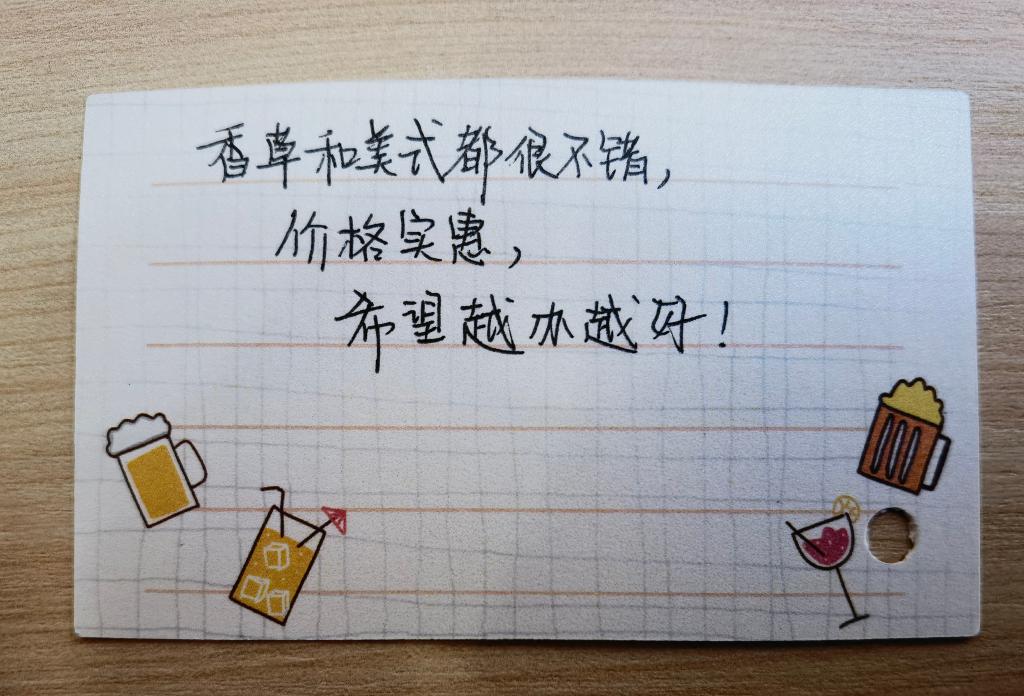 香草和美式都很不错,
价格实惠,
希望越办越好!